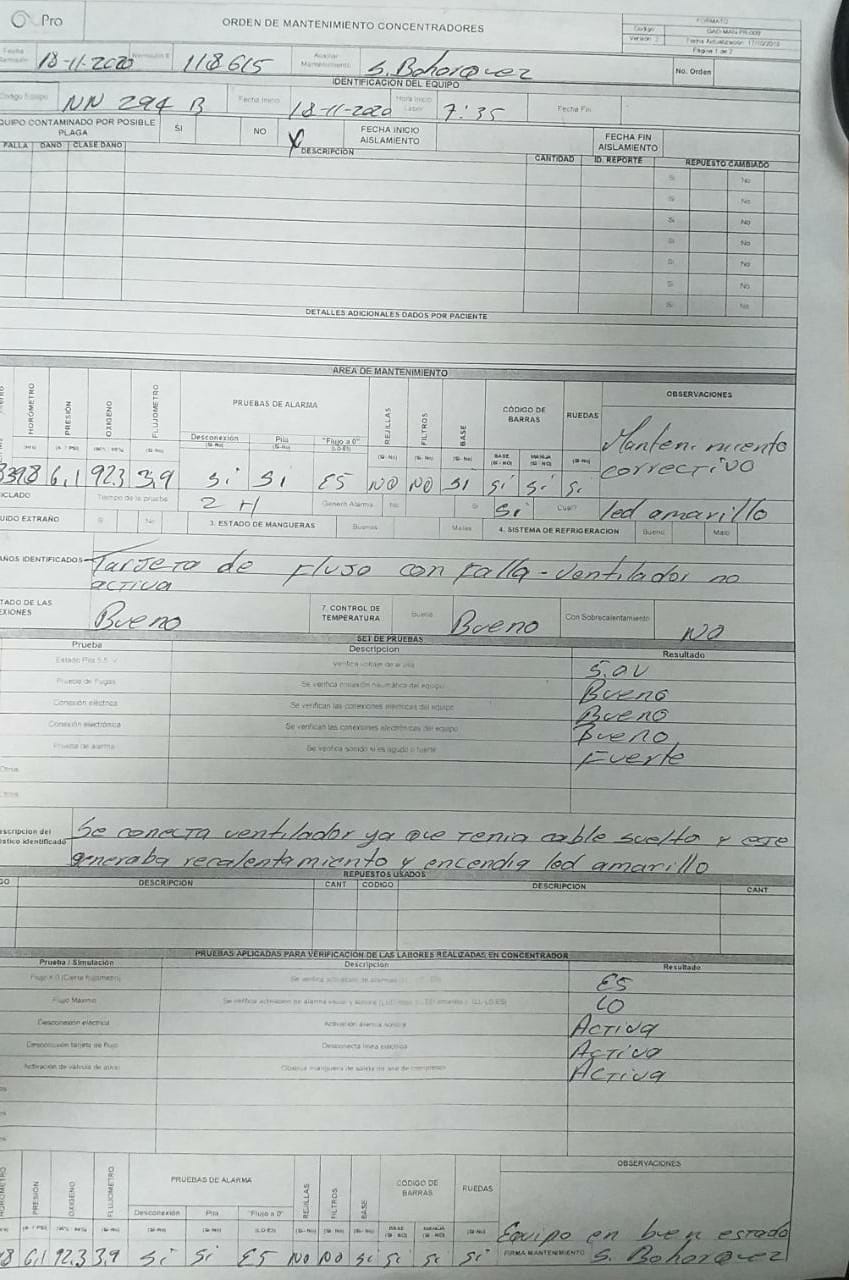 Pro
ORDEN DE MANTENIMIENTO CONCENTRADORES
FORMATO
Código
Versión 2
Página 1 de 2
18-11-2020 118615 Auxiliar Mantenimiento S. Bohorquez No. Orden
IDENTIFICACION DEL EQUIPO
NN 294 B Fecha Inicio 18-11-2020 Hora Inicio Labor 7:35 Fecha Fin
QUIPO CONTAMINADO POR POSIBLE PLAGA SI NO X FECHA INICIO AISLAMIENTO FECHA FIN AISLAMIENTO
FALLA DAÑO CLASE DAÑO DESCRIPCIÓN CANTIDAD ID. REPORTE REPUESTO CAMBIADO
Si No
Si No
Si No
Si No
Si No
Si No
Si No
DETALLES ADICIONALES DADOS POR PACIENTE
AREA DE MANTENIMIENTO
HOROMETRO PRESION OXIGENO FLUJOMETRO PRUEBAS DE ALARMA REJILLAS FILTROS BASE CÓDIGO DE BARRAS RUEDAS OBSERVACIONES
Desconexión Pila "Flujo a 0" BASE MANIJA
Mantenimiento
correctivo
3986 6,1 92.3 3,9 Si Si ES NO NO SI Si Si Si
CICLADO Tiempo de la prueba 2 H Generó Alarma No Si Si Cual? led amarillo
UIDO EXTRAÑO Si No 3. ESTADO DE MANGUERAS Buenas Malas 4. SISTEMA DE REFRIGERACION Bueno Malo
AÑOS IDENTIFICADOS Tarjeta de Flujo con falla - ventilador no
activa
TADO DE LAS EXIONES Bueno 7. CONTROL DE TEMPERATURA Bueno Bueno Con Sobrecalentamiento NO
SET DE PRUEBAS
Prueba Descripcion Resultado
Estado Pila 5.5 V Verifica voltaje de la pila 5.0V
Prueba de Fugas Se verifica conexión neumática del equipo Bueno
Conexión eléctrica Se verifican las conexiones eléctricas del equipo Bueno
Conexión electrónica Se verifican las conexiones electrónicas del equipo Bueno
Prueba de alarma Se verifica sonido si es agudo o fuerte Fuerte
Otros
Otros
escripcion del ostico identificado Se conecta ventilador ya que tenia cable suelto y ese
generaba recalentamiento y encendia led amarillo
REPUESTOS USADOS
GO DESCRIPCIÓN CANT CODIGO DESCRIPCION CANT
PRUEBAS APLICADAS PARA VERIFICACION DE LAS LABORES REALIZADAS EN CONCENTRADOR
Prueba / Simulación Descripción Resultado
Flujo a 0 (Cierre flujómetro) Se verifica activación de alarmas ES
Flujo Máximo LO
Desconexión eléctrica Activación alarma sonora Activa
Desconexión tarjeta de flujo Desconecta línea eléctrica Activa
Activación de válvula de alivio Activa
HOROMETRO PRESION OXIGENO FLUJOMETRO PRUEBAS DE ALARMA REJILLAS FILTROS BASE CÓDIGO DE BARRAS RUEDAS OBSERVACIONES
Desconexión Pila "Flujo a 0" BASE MANIJA
Equipo en buen estado
86 6,1 92.3 3,9 Si Si ES NO NO Si Si Si Si FIRMA MANTENIMIENTO S. Bohorquez